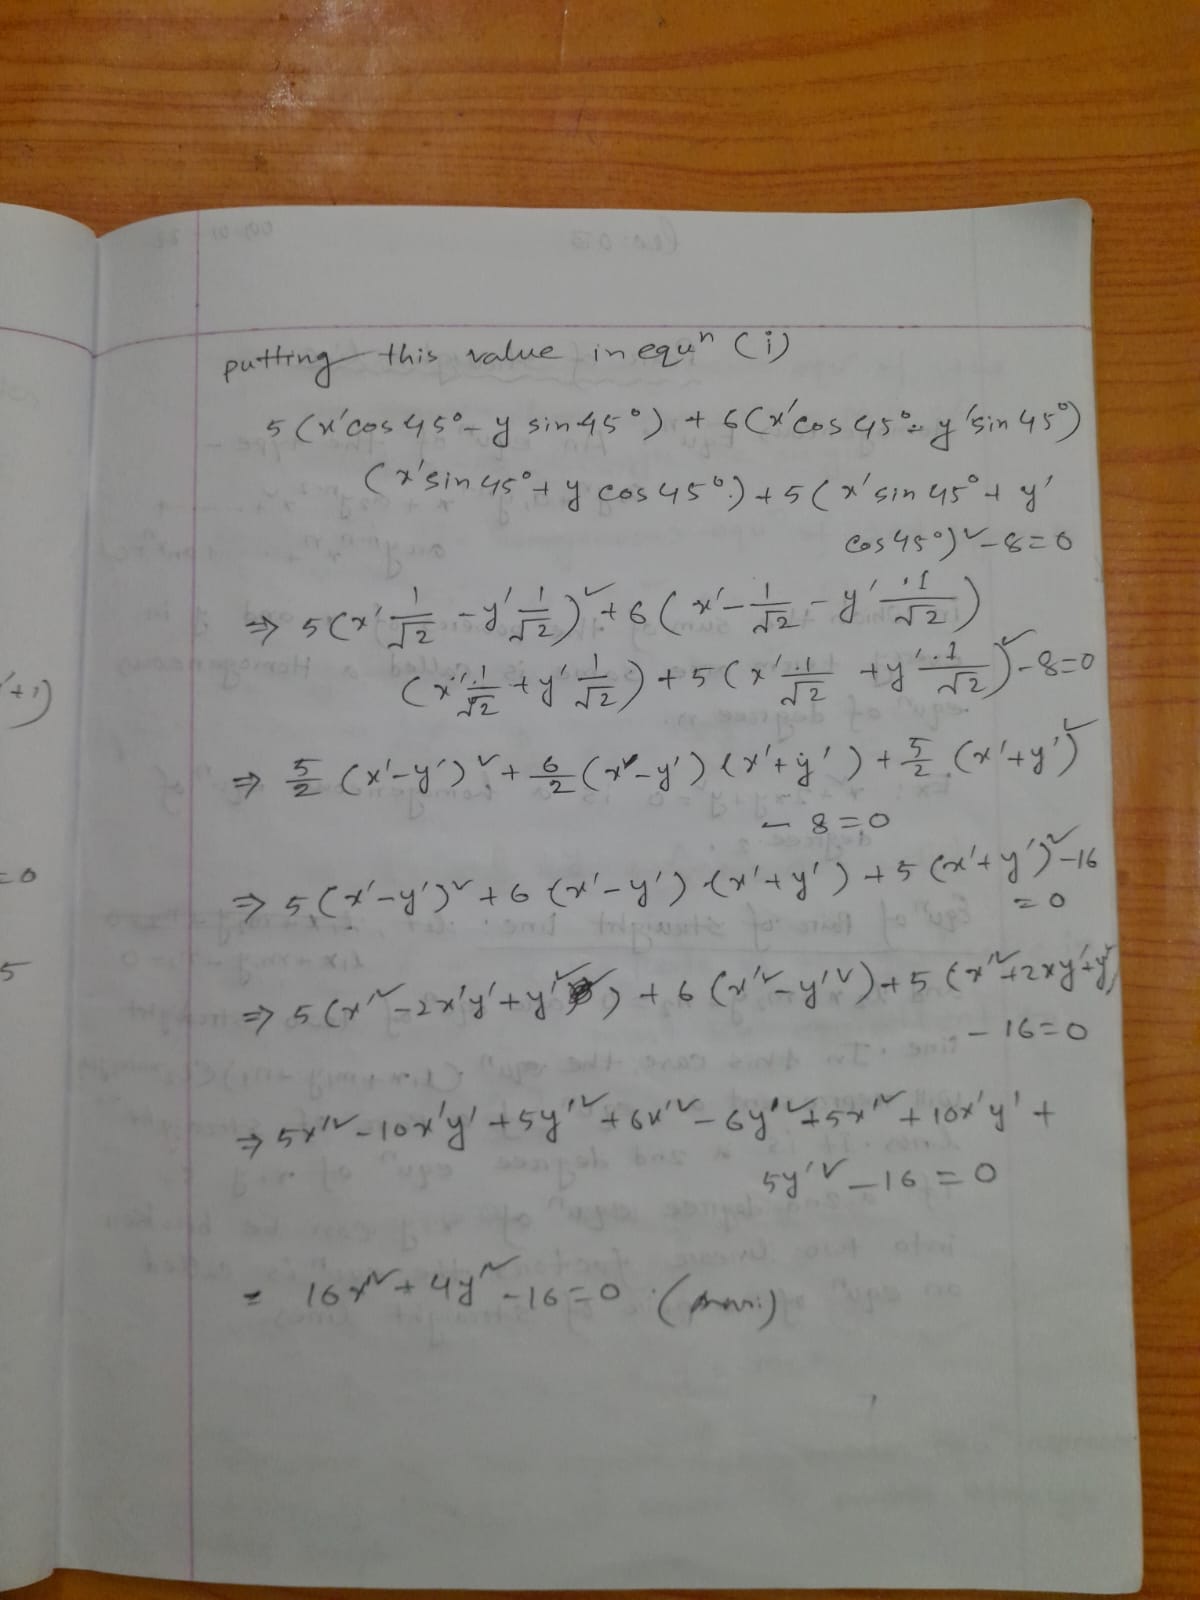 putting this value in equⁿ (i)
5 (x'cos 45° - y sin 45°) + 6(x'cos 45° - y'sin 45°)
(x'sin 45° + y cos 45°) + 5 (x'sin 45° + y'
cos 45°)² - 8 = 0
⇒ 5(x' 1/√2 - y' 1/√2)² + 6 (x' - 1/√2 - y' .1/√2)
(x'.1/√2 + y' 1/√2) + 5 (x'.1/√2 + y'.1/√2)² - 8=0
⇒ 5/2 (x'-y')² + 6/2 (x'-y') (x'+y') + 5/2 (x'+y')²
- 8 = 0
⇒ 5(x'-y')² + 6 (x'-y') (x'+y') + 5 (x'+y')² - 16
= 0
⇒ 5(x'² - 2x'y' + y'²) + 6 (x'² - y'²) + 5 (x'² + 2xy' + y'²)
- 16 = 0
⇒ 5x'² - 10x'y' + 5y'² + 6x'² - 6y'² + 5x'² + 10x'y' +
5y'² - 16 = 0
= 16x'² + 4y'² - 16 = 0
'+1)
= 0
5